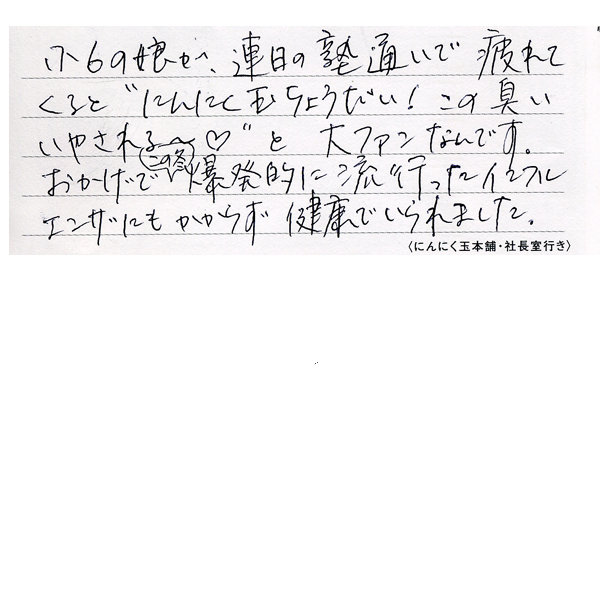 小6の娘が、連日の塾通いで疲れて
くると“にんにく玉ちょうだい！この臭い
いやされる〜♡”と大ファンなんです。
おかげでこの冬爆発的に流行ったインフル
エンザにもかからず健康でいられました。
〈にんにく玉本舗・社長室行き〉